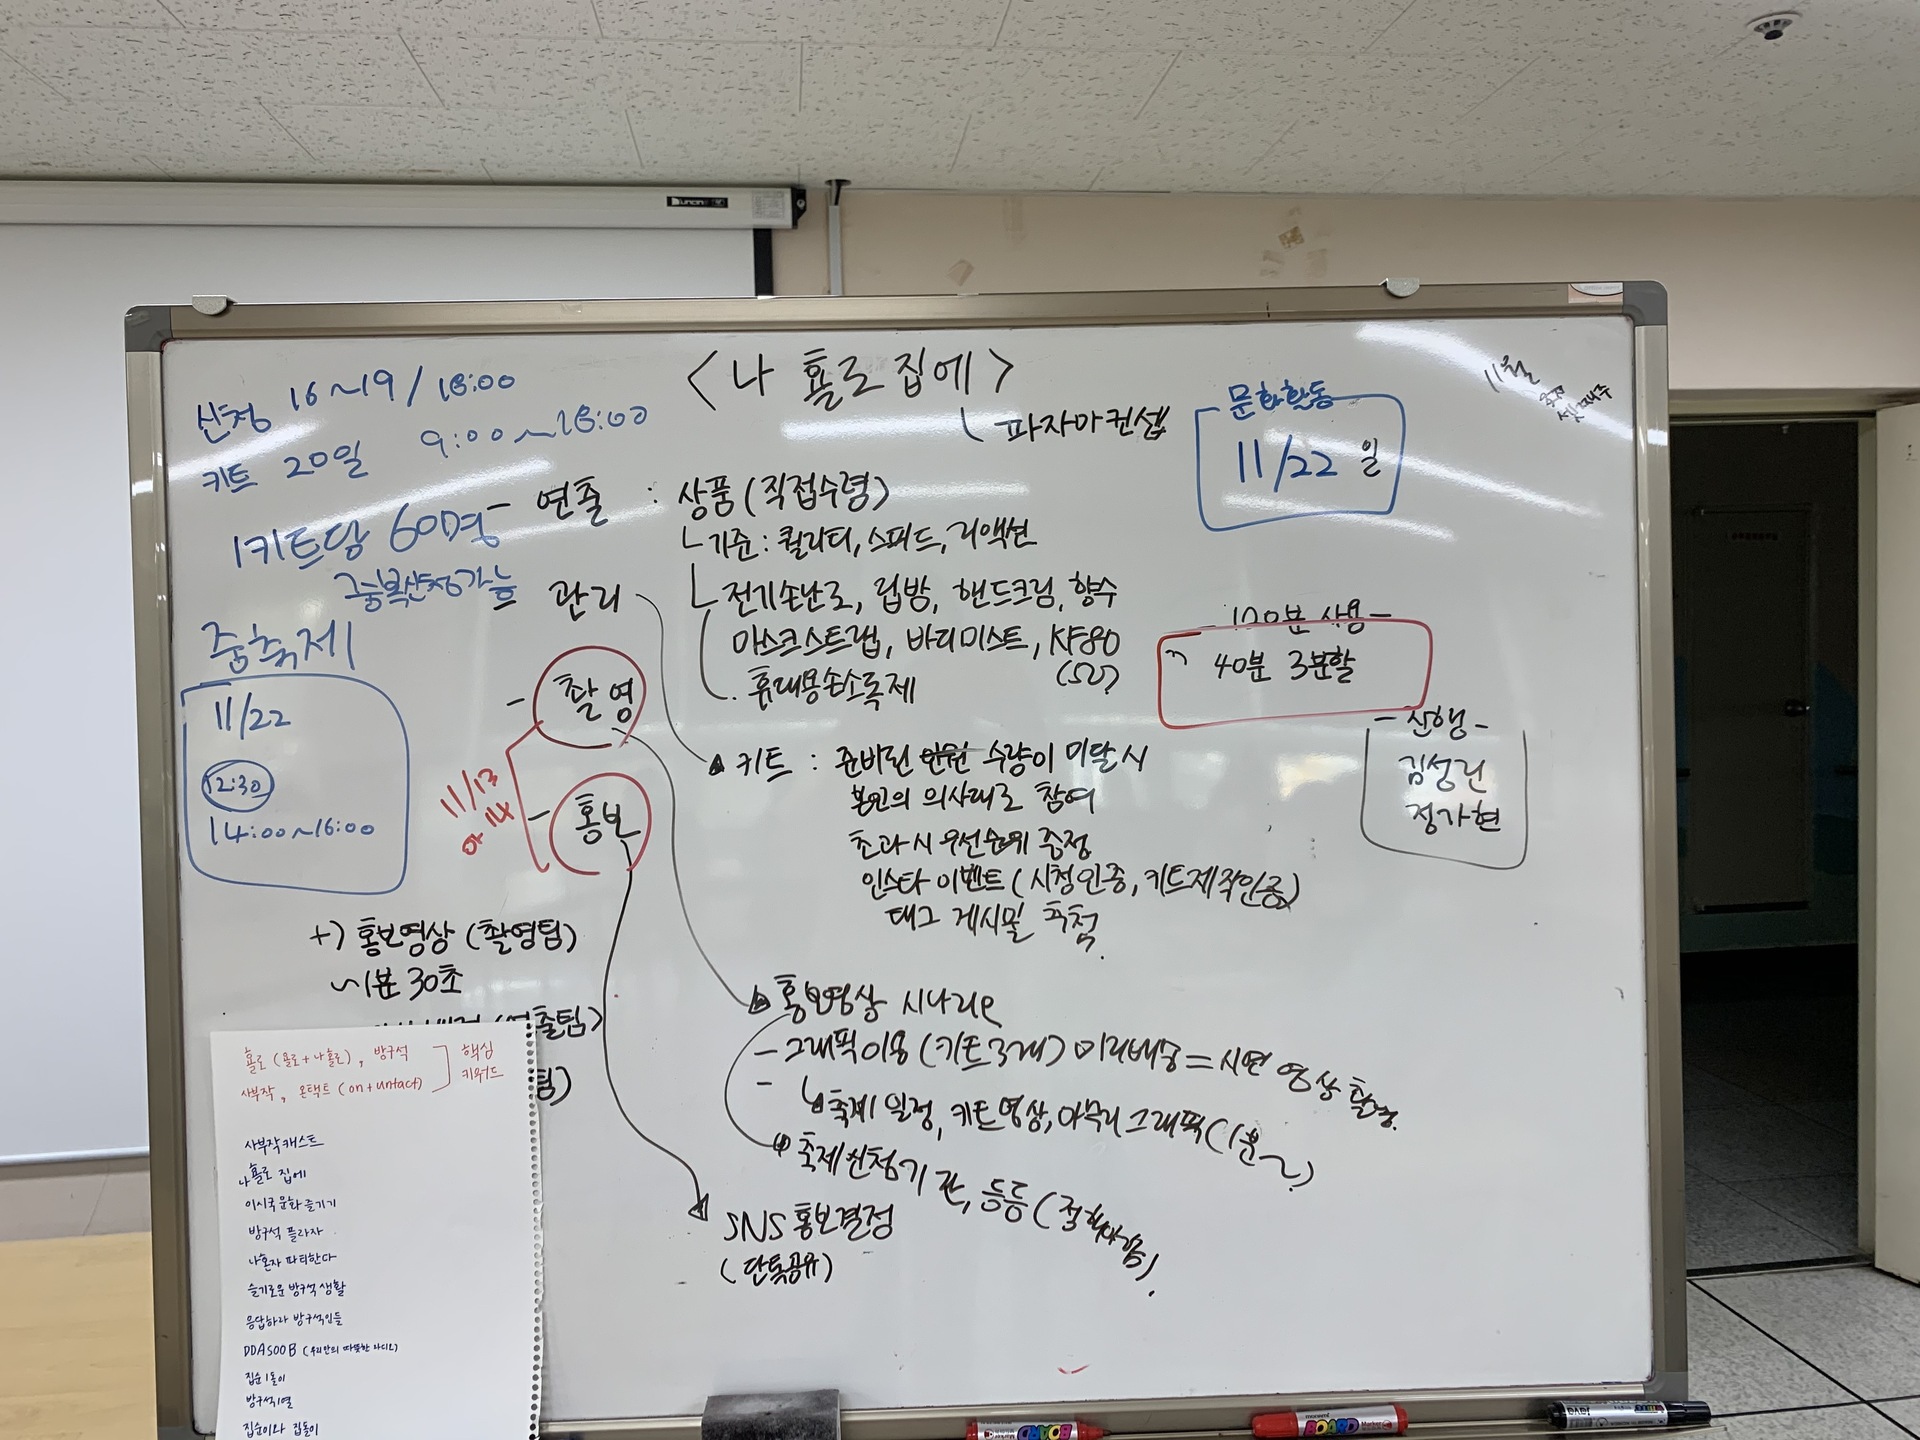 <나 홀로 집에>
ㄴ 파자마컨셉
신청 16~19/18:00
키트 20일 9:00~18:00
1키트당 60명
중복신청가능
줌축제
11/22
12:30
14:00~16:00
- 연출 : 상품(직접수령)
ㄴ기준: 퀄리티, 스피드, 리액션
ㄴ전기손난로, 립밤, 핸드크림, 향수
마스크스트랩, 바디미스트, KF80
휴대용손소독제
- 관리
- 촬영
- 홍보
11/13 or 14
문화활동
11/22 일
11월
셋째주
120분 사용
40분 3분할
- 진행 -
김성린
정가현
키트 : 준비된 수량이 미달 시
본인의 의사대로 참여
초과시 우선순위 증정
인스타 이벤트(시청인증, 키트제작인증)
태그 게시물 추첨.
+) 홍보영상 (촬영팀)
~1분 30초
출팀)
팀)
홍보영상 시나리오
- 그래픽이용 (키트 3개) 미리배송 = 시연 영상 촬영.
ㄴ축제 일정, 키트영상, 마무리 그래픽(1분~)
축제신청기간, 등등
SNS 홍보결정
(단톡공유)
홀로 (욜로+나홀로), 방구석
사부작, 온택트 (on+untact)
핵심
키워드
사부작캐스트
나 홀로 집에
이시국문화 즐기기
방구석 플라자
나혼자 파티한다
슬기로운 방구석 생활
응답하라 방구석인들
DDASOOB (우리만의 따뜻한 라디오)
집순1돌이
방구석1열
집순이와 집돌이